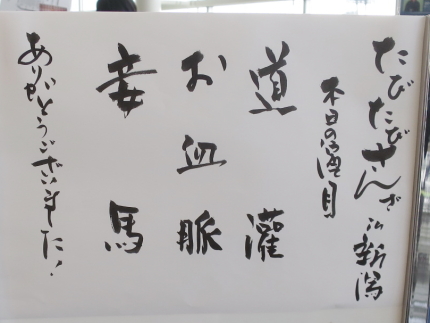 たびたびさんざ in 新潟
本日の演目
道灌
お血脈
妾馬
ありがとうございました!